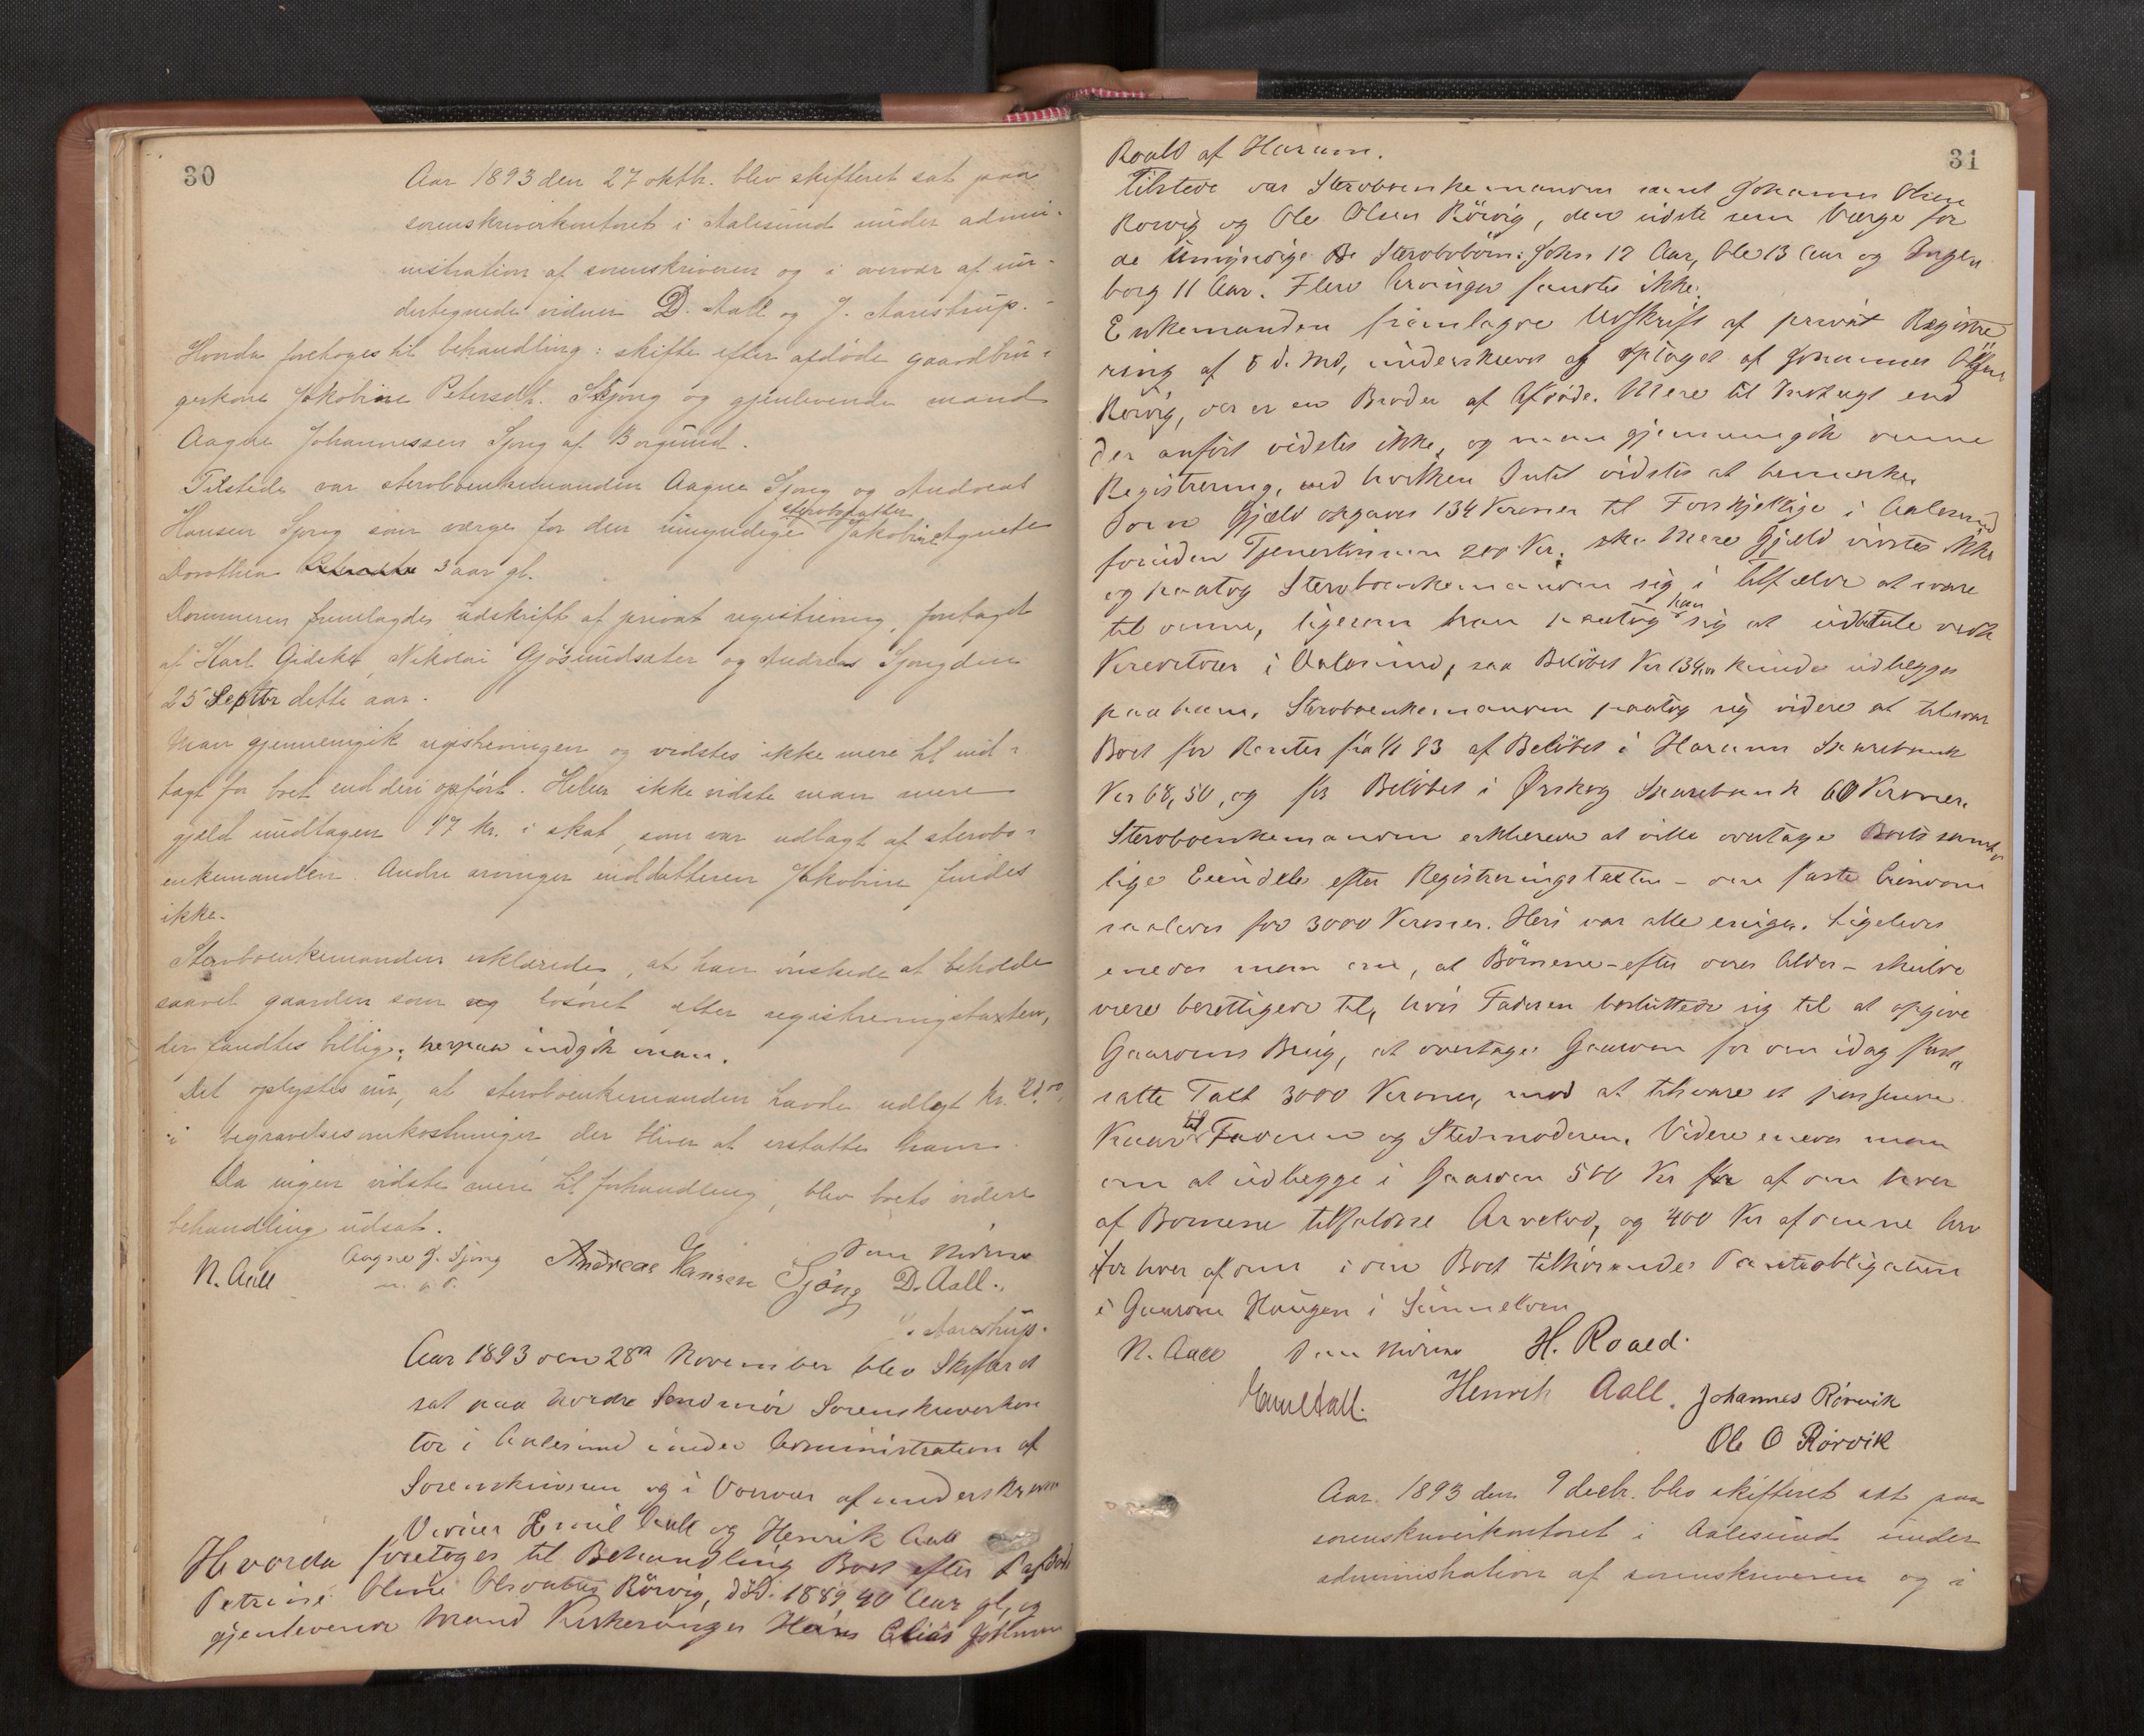 30
Aar 1893 den 27 oktb. blev skifteret sat paa
sorenskriverkontoret i Aalesund under admi-
nistration af sorenskriveren og i overvær af un-
dertegnede vidner D. Aall og J. Aarestrup.
Hvorda foretoges til behandling: skifte efter afdöde gaardbru-
gerkone Jakobine Petersdt. Sjong og gjenlevende mand
Aagne Johannessen Sjong af Borgund.
Tilstede var sterboenkemanden Aagne Sjong og Andreas
Hansen Sjong som værge for den umyndige sterbodatter Jakobine Agnete
Dorothea 3 aar gl.
Dommeren fremlagde udskrift af privat registrering, foretaget
af Karl Gidske, Nikolai Gjösundsæter og Andreas Sjong den
25 Septbr dette aar.
Man gjennemgik registreringen og vidstes ikke mere til ind-
tægt for boet end deri opført. Heller ikke vidste man mere
gjeld undtagen 17 kr. i skat, som var udlagt af sterbo-
enkemanden. Andre arvinger end datteren Jakobine findes
ikke.
Sterboenkemanden erklærede, at han önskede at beholde
saavel gaarden som og lösöret efter registreringstaxten,
der fandtes billig; herpaa indgik man.
Det oplystes nu, at sterboenkemanden havde udlagt Kr.
i begravelsesomkostninger der bliver at erstatte ham.
Da ingen vidste mere til forhandling, blev boets videre
behandling udsat.
N. Aall Aagne J. Sjong Andreas Hansen Sjöng Som Vidner
m. p. P. D. Aall.
J. Aarestrup.
Aar 1893 den 28de November blev Skifteret
sat paa Nordre Søndmör Sorenskriverkon
tor i Aalesund under Administration af
Sorenskriveren og i Overvær af underskrevne
Vidner Emil Aall og Henrik Aall
Hvorda foretoges til Behandling Boet efter Afdöde
Petrine Oline Olsdatter Rörvig, död. 1889 40 Aar gl, og
gjenlevende Mand Kirkesanger Hans Elias Johnsen
31
Roald af Haram.
Tilstede var Sterboenkemanden samt Johannes Olsen
Rörvig og Ole Olsen Rörvig, den sidste som Værge for
de umyndige Sterbobörn: John 17 Aar, Ole 13 Aar og Inge
borg 11 Aar. Flere Arvinger fandtes ikke.
Enkemanden fremlagde Udskrift af privat Registre
ring af 8 d. Md, underskrevet og optaget af Johannes Olsen
Rörvig, der er en Broder af Afdöde. Mere til Indtægt end
der anfört vidstes ikke, og man gjennemgik denne
Registrering, ved hvilken Intet vidstes at bemærke.
Som Gjæld opgaves 134 Kroner til Forskjellige i Aalesund
foruden Tjenerlön 200 Kr. Mere Gjæld vidstes ikke
og paatog Sterboenkemanden sig i Tilfælde at svare
til denne, ligesom han paatog han sig at udbetale
Kreditorer i Aalesund, saa Belöbet Kr 134,00 kunde udlægges
paa ham. Sterboenkemanden paatog sig videre at tilsvare
Boet for Renter fra 1/1 93 af Belöbet i Haram Sparebank
Kr 68,50, og for Belöbet i Ørskog Sparebank 60 Kroner.
Sterboenkemanden erklærede at ville overtage Boets samt
lige Eiendele efter Registreringstaxten – den faste Eiendom
saaledes for 3000 Kroner. Heri var alle enige. Ligeledes
enedes man om, at Börnene – efter deres Alder – skulde
være berettigede til, hvis Faderen besluttede sig til at opgive
Gaardens Brug, at overtage Gaarden for den idag fast
satte Taxt 3000 Kroner, mod at tilsvare et passende
Kaar til Faderen og Stedmoderen. Videre enedes man
om at udlægge i Gaarden 500 Kr for af den hver
af Börnene tilfaldne Arvelod, og 400 Kr af denne Arv
for hver af dem i den Boet tilhörende Panteobligation
i Gaarden Haugen i Sunnelven
N. Aall Som Vidner H. Roald.
Emil Aall. Henrik Aall. Johannes Rørvik
Ole O Rørvik
Aar 1893 den 9 decbr. blev skifteret sat paa
sorenskriverkontoret i Aalesund under
administration af sorenskriveren og i